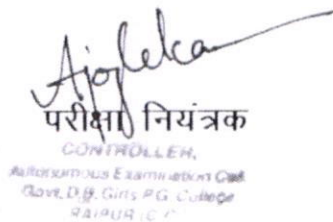 परीक्षा नियंत्रक
CONTROLLER,
Autonomous Examination Cell
Govt. D.B. Girls P.G. College
RAIPUR (C.G.